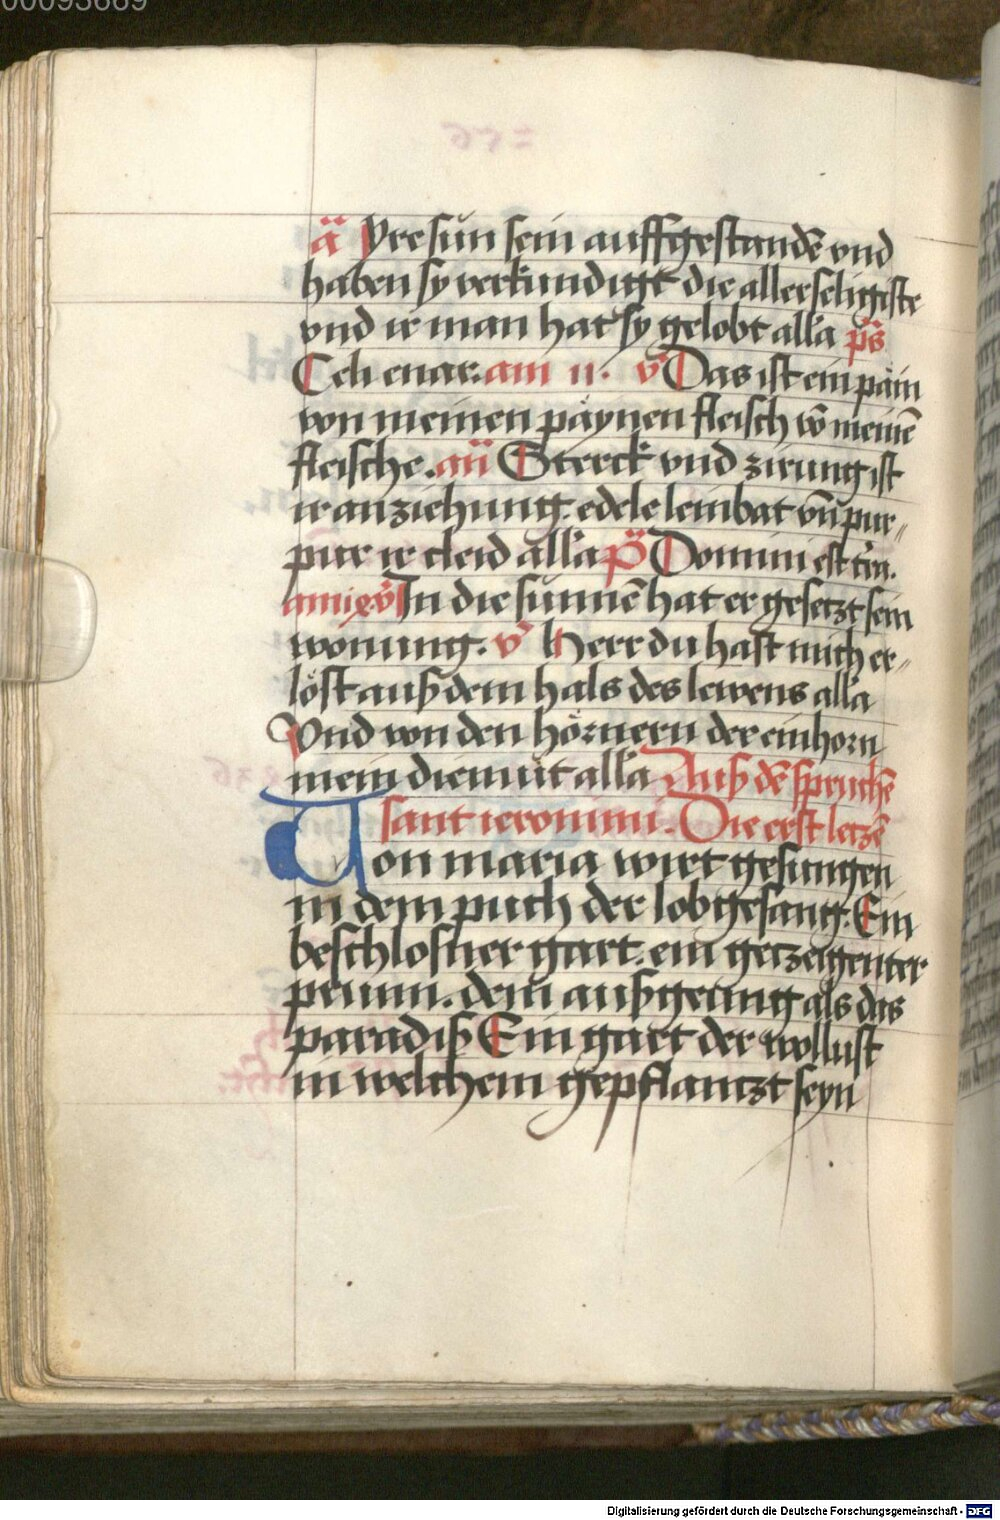 00093669
ä Yre sün sein auffgestandē vnd
haben sy verkündigt die allerseligiste
vnd ir man hat sy gelobt alla ps̄
Celi enar. am 11. v̄ Das ist ein päin
von meinen päynen fleisch vō meinē
fleische. an̄ Sterck vnd zirung ist
ir anziehung. edele leinbat vn̄ pur„
pur ir cleid alla p̄s Domini est t̄ra.
am ix. v̄ In die sunnē hat er gesetzt sein
wonung. v̄ Herr du hast mich er„
löst auß dem hals des lewens alla
Vnd von den hörnern der einhorn
mein diemüt alla Auß dē sprüchē
sant ieronimi. Die erst letzē
Von maria wirt gesungen
in dem puch der lobgesang. Ein
beschlosner gart. ein getzeigenter
prunn. dein außgeung als das
paradiß Ein gart der wollust
in welchem gepflantzt seyn
Digitalisierung gefördert durch die Deutsche Forschungsgemeinschaft - DFG